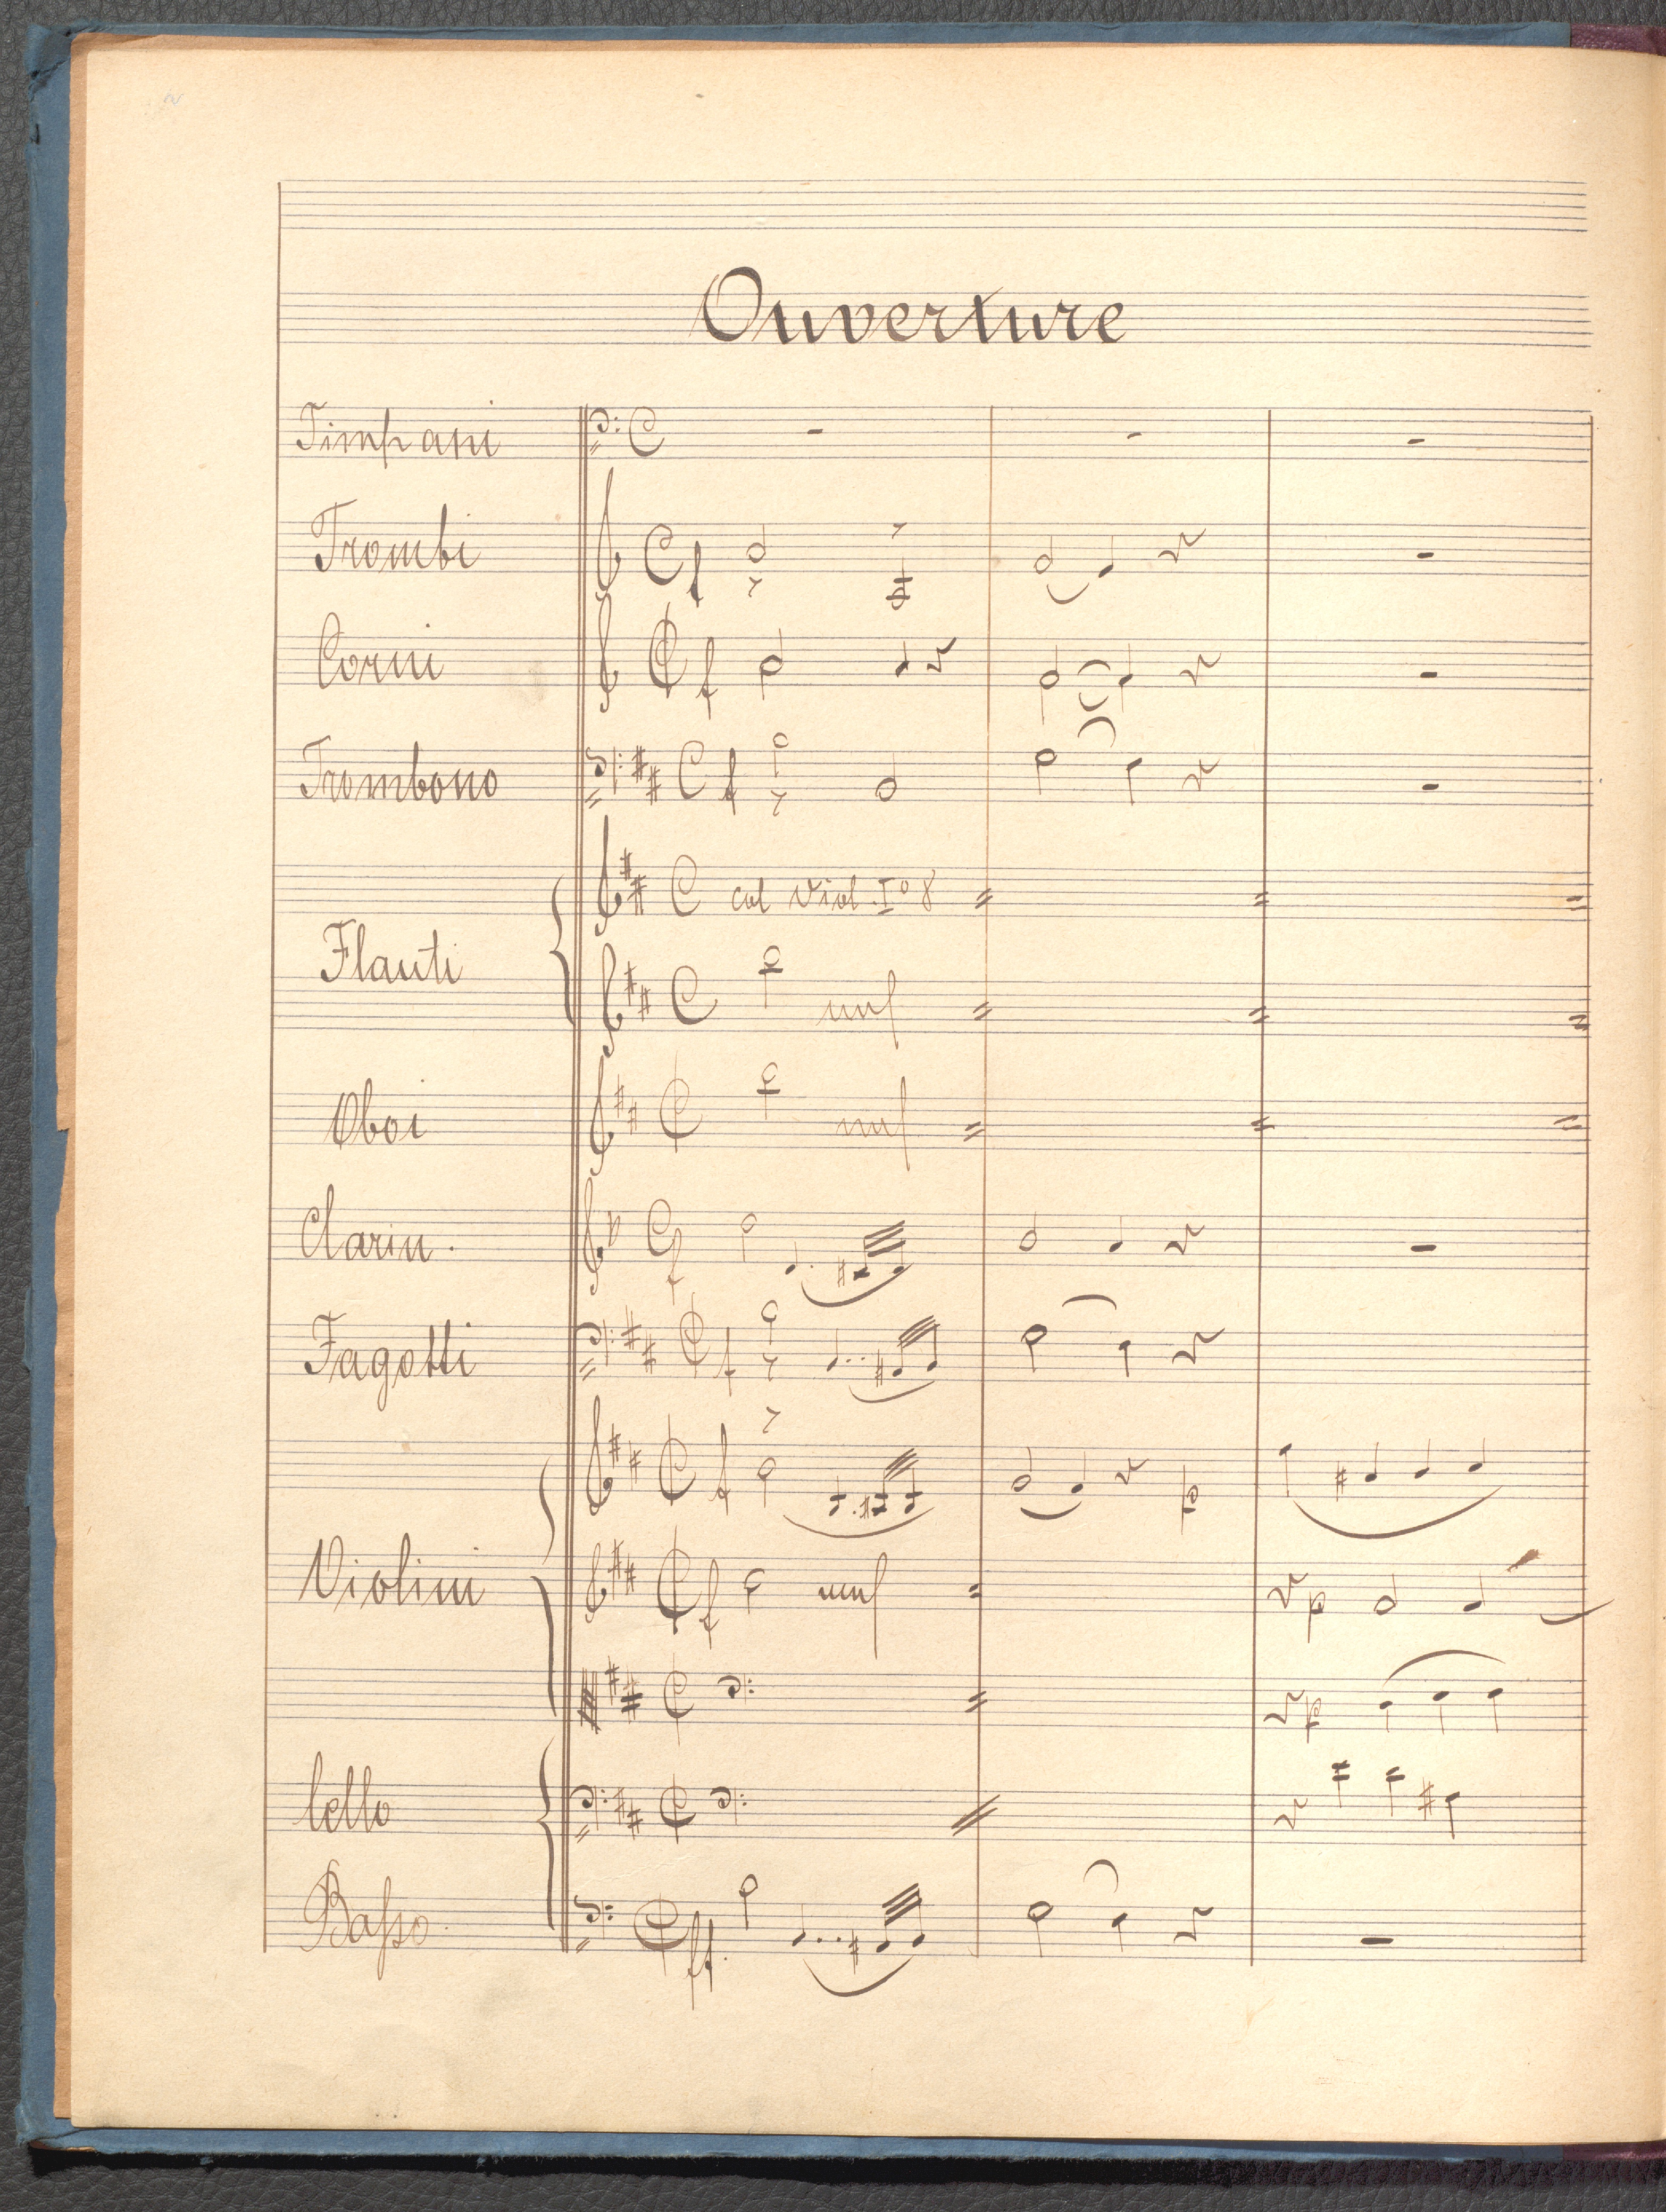 Ouverture
Timpani
Trombi f
Corni f
Trombono f
col Viol. Iº 8
Flauti
unis
Oboi unis
Clarin. f
Fagotti f
f p
Violini f unis p
p
Cello
Basso. ff.